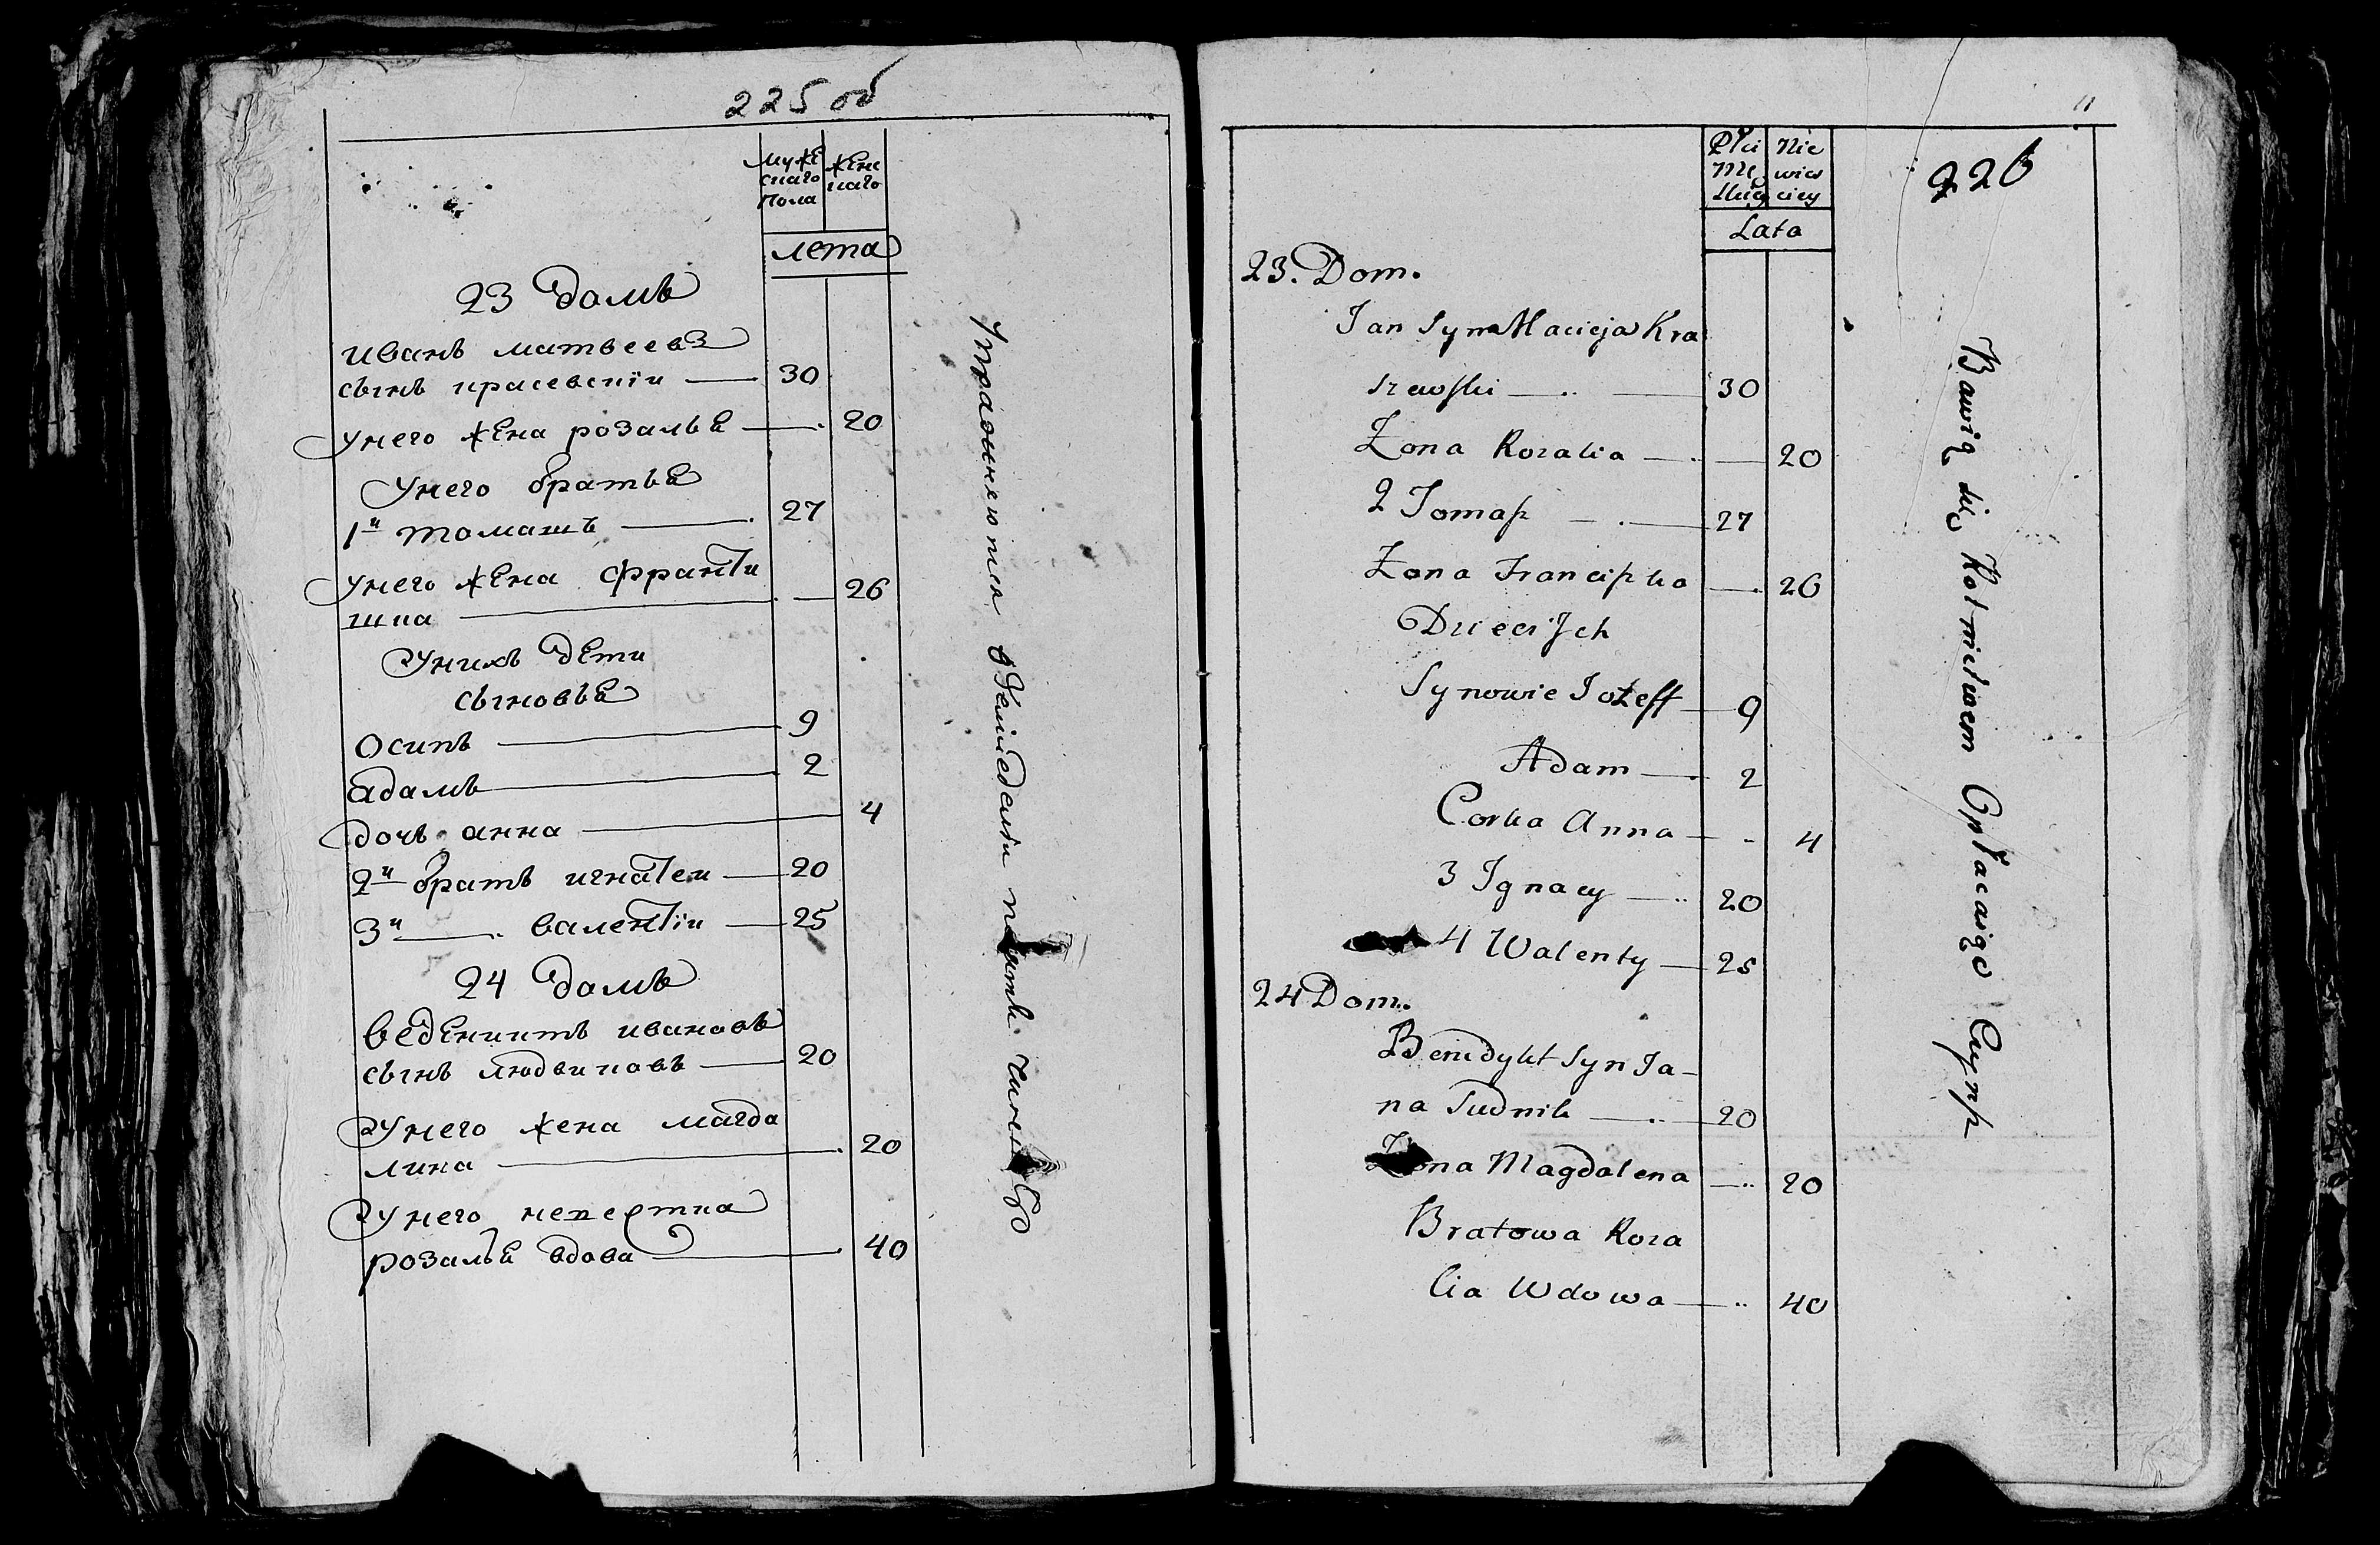 225 об
муже
скаго
пола
женс
каго
лета
23 домъ
иванъ матвеевъ
сынъ красевскіи 30
унего жена розалья 20
унего братья
1й томашъ 27
унего жена франти
шка 26
унихъ дети
сыновья
осипъ 9
адамъ 2
дочь анна 4
2й братъ игнатеи 20
3й валентіи 25
24 домъ
веденинтъ ивановъ
сынъ людвиковъ 20
унего жена магда
лина 20
унего невестка
розалья вдова 40
упражняются
226
Płci
Mę
skiey
Nie
wieś
ciey
Lata
23. Dom.
Jan Syn Macieja Kra
szewski 30
Żona Rozalia 20
2 Tomasz 27
Żona Franciszka 26
Dzieci Jch
Synowie Jozeff 9
Adam 2
Corka Anna 4
3 Jgnacy 20
4 Walenty 25
24 Dom.
Benedykt Syn Ja-
na Sudnik 20
Żona Magdalena 20
Bratowa Roza
lia Wdowa 40
Bawią się Rolnictwem Opłacaiąc Czynsz